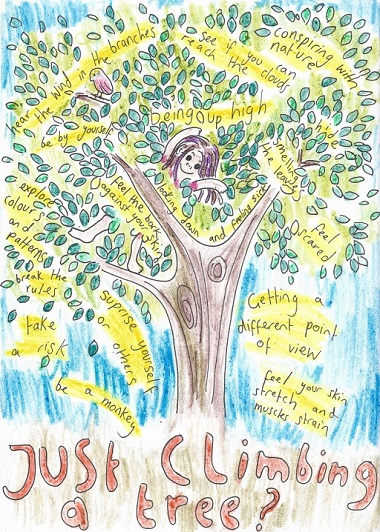 hear the wind in the branches
see if you can
reach the clouds
conspiring with
nature
be by yourself
being up high
hide
smelling
the leaves
looking down and feeling sick
feel the bark
against your skin
explore
colours
and
patterns
feel
scared
break the
rules
take
a risk
suprise yourself
or others
be a monkey
Getting a
different point
of view
feel your skin
stretch and
muscles strain
JUST CLimbing
a tree?